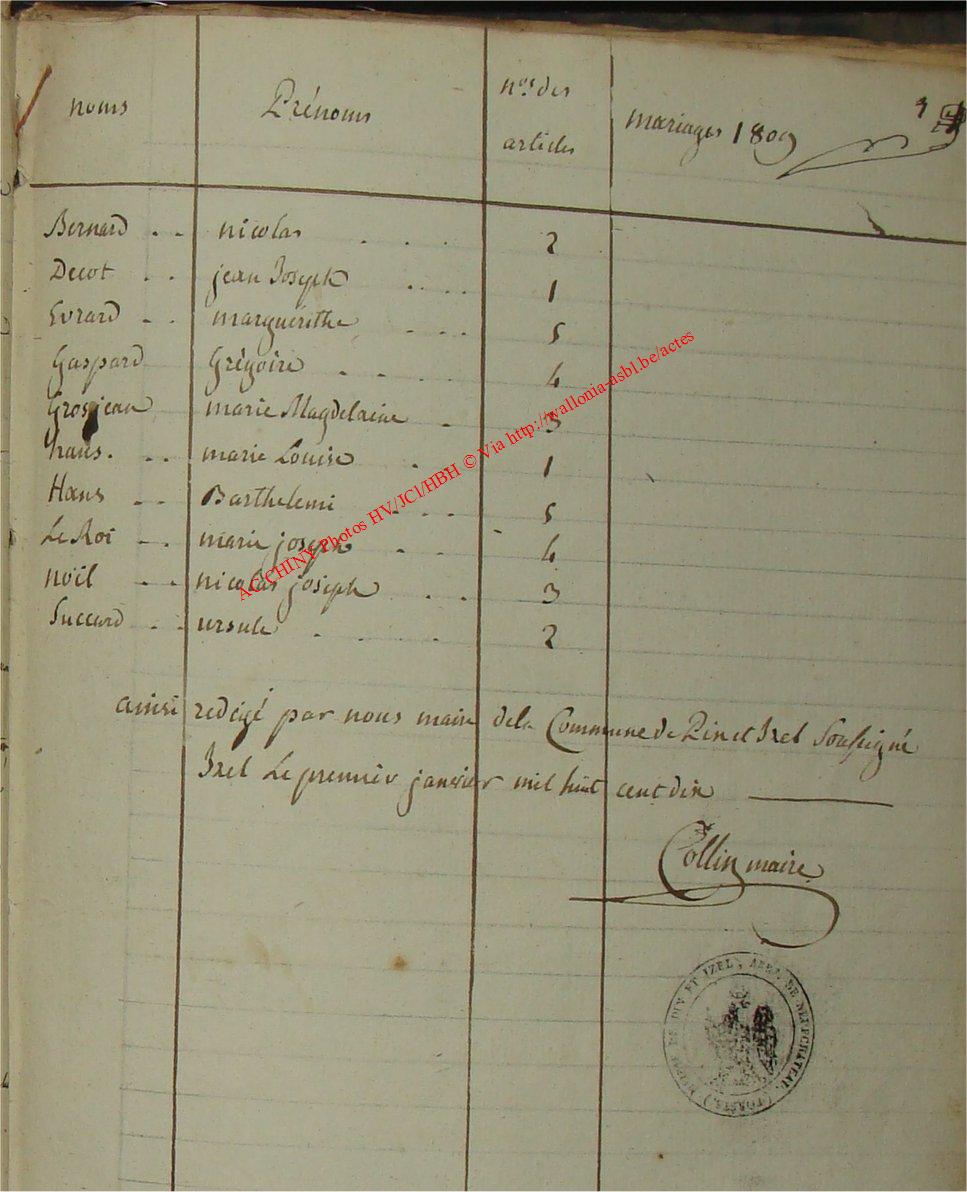 noms Prénoms nos. des articles mariages 1809
Bernard . . nicolas . . . 2
Decot . . jean Joseph . . . . 1
Evrard . . marguerithe . . . 5
Gaspard Grégoire . . . . 4
Grosjean marie Magdelaine . 3
hans . . . marie Louise . 1
Hans . . Barthelemi . . . 5
Le Roi . . marie joseph . . 4
noël . . nicolas joseph . . 3
Succard . . ursule . . . 2
ainsi redigé par nous maire dela Commune de Pin et Izel Soussigné
Izel Le premier janvier mil huit cent dix
Collin maire
MAIRIE DE PIN ET IZEL, ARR. DE NEUFCHATEAU, (FORETS.)
ACCHINY Photos HV/JCl/HBH © Via http://wallonia-asbl.be/actes